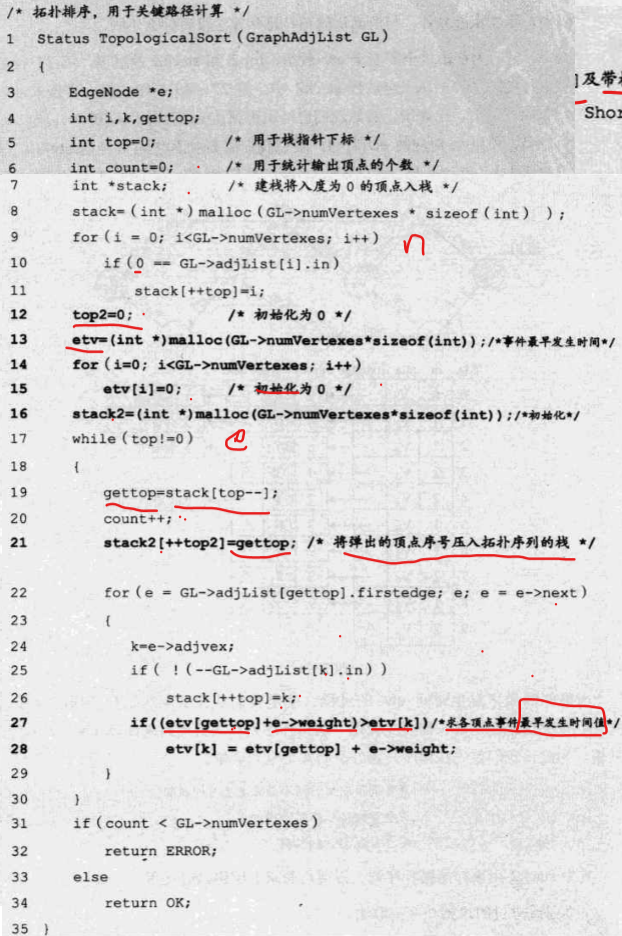 /* 拓扑排序，用于关键路径计算 */
1 Status TopologicalSort(GraphAdjList GL)
2 {
3 EdgeNode *e;
4 int i,k,gettop;
5 int top=0; /* 用于栈指针下标 */
6 int count=0; /* 用于统计输出顶点的个数 */
7 int *stack; /* 建栈将入度为 0 的顶点入栈 */
8 stack=(int *)malloc(GL->numVertexes * sizeof(int) );
9 for(i = 0; i<GL->numVertexes; i++) n
10 if(0 == GL->adjList[i].in)
11 stack[++top]=i;
12 top2=0; /* 初始化为 0 */
13 etv=(int *)malloc(GL->numVertexes*sizeof(int));/*事件最早发生时间*/
14 for(i=0; i<GL->numVertexes; i++)
15 etv[i]=0; /* 初始化为 0 */
16 stack2=(int *)malloc(GL->numVertexes*sizeof(int));/*初始化*/
17 while(top!=0) e
18 {
19 gettop=stack[top--];
20 count++;
21 stack2[++top2]=gettop; /* 将弹出的顶点序号压入拓扑序列的栈 */
22 for(e = GL->adjList[gettop].firstedge; e; e = e->next)
23 {
24 k=e->adjvex;
25 if( !(--GL->adjList[k].in))
26 stack[++top]=k;
27 if((etv[gettop]+e->weight)>etv[k])/*求各顶点事件最早发生时间值*/
28 etv[k] = etv[gettop] + e->weight;
29 }
30 }
31 if(count < GL->numVertexes)
32 return ERROR;
33 else
34 return OK;
35 }
]及带
Shor